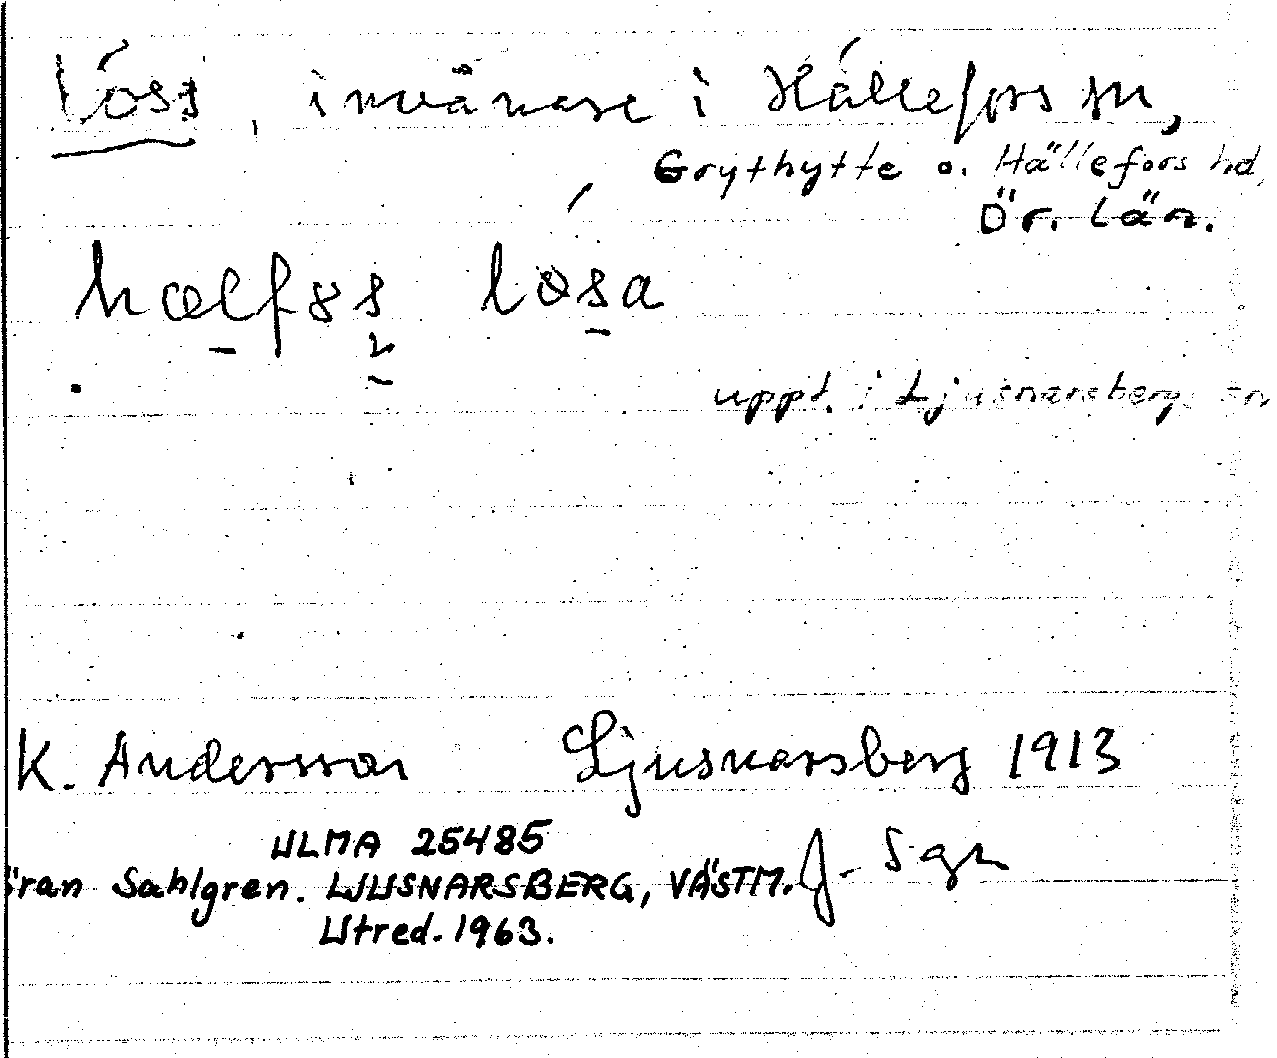 Löss, invånare i Hällefors sn,
Grythytte o. Hällefors hd,
Ör. län.
hælfɷs lɷsa
uppt. i Ljusnarsberg sn
K. Andersson Ljusnarsberg 1913
ULMA 25485
öran Sahlgren. LJUSNARSBERG, VÄSTM. J. Sgn
Utred. 1963.